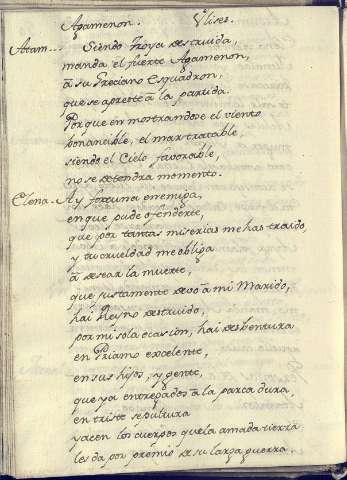 Agamenon. Vlises.
Atam... Siendo Troya destruida,
manda el fuerte Agamenon,
â su Greciano esquadron,
que se apreste â la partida.
Porque en mostrandose el viento
bonancible, el mar tratable,
siendo el Cielo favorable,
no se detendra momento.
Elena. Ay fortuna enemiga,
en que pude ofenderte,
que por tantas miserias me has traido,
y tu crueldad me obliga
â desear la muerte,
que justamente devo â mi Marido,
hai Reyno destruido,
por mi sola ocasion, hai desbentura
en Priamo excelente,
en sus hijos, y gente,
que ya entregados â la parca dura,
en triste sepultura
yacen los cuerpos que la amada tierra
les da por premio de su larga guerra.